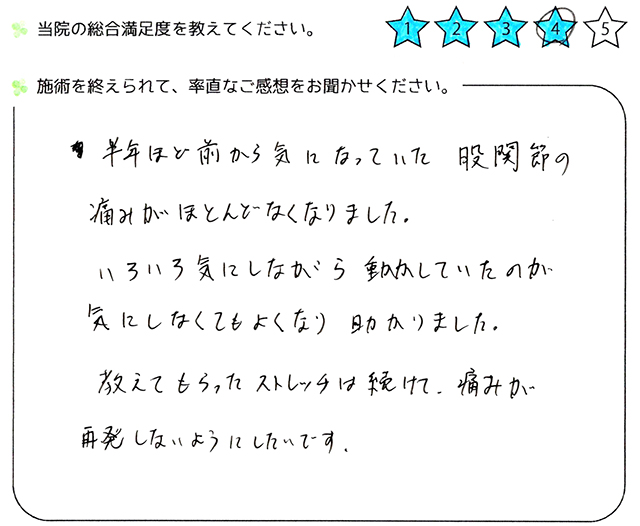 当院の総合満足度を教えてください。 1 2 3 4 5
施術を終えられて、率直なご感想をお聞かせください。
半年ほど前から気になっていた 股関節の
痛みがほとんどなくなりました。
いろいろ気にしながら 動かしていたのが
気にしなくてもよくなり 助かりました。
教えてもらったストレッチは続けて、痛みが
再発しないようにしたいです。